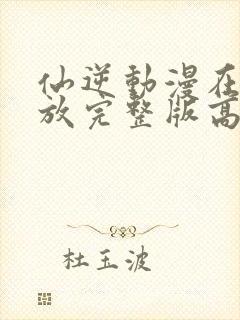 仙逆動漫在
放完整版高
杜玉波